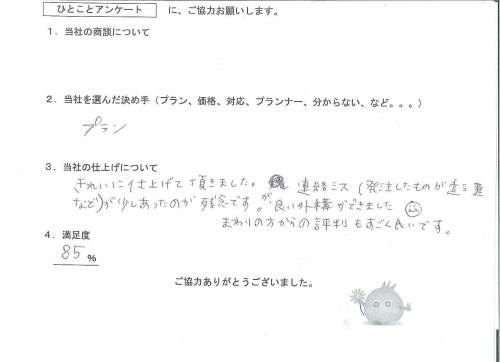 ひとことアンケート に、ご協力お願いします。
1．当社の商談について
2．当社を選んだ決め手（プラン、価格、対応、プランナー、分からない、など。。。）
プラン
3．当社の仕上げについて
きれいに仕上げて頂きました。 連絡ミス（発注したものが違う
など）が少しあったのが残念ですが良い外構ができました
まわりの方からの評判もすごく良いです。
4．満足度
85％
ご協力ありがとうございました。